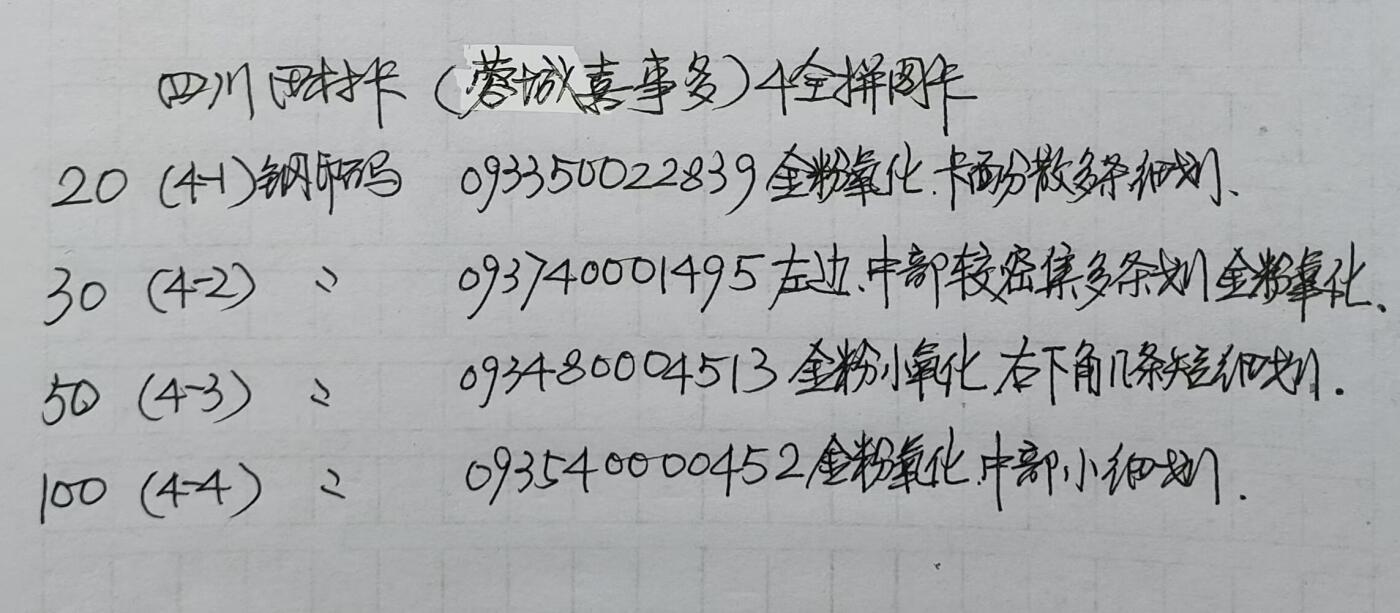 四川田村卡(蓉城喜事多)4全拼图卡
20 (4-1)钢印码 093350022839金粉氧化.卡面分散多条细划、
30 (4-2) 〃 093740001495左边.中部较密集多条划金粉氧化、
50 (4-3) 〃 093480004513金粉小氧化.右下角几条短细划.
100 (4-4) 〃 093540000452金粉氧化.中部小细划.